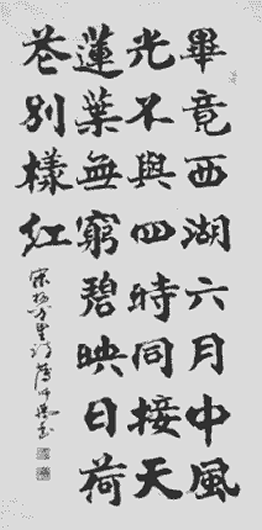 畢竟西湖六月中風
光不與四時同接天
蓮葉無窮碧映日荷
花別樣紅
宋楊万里詩